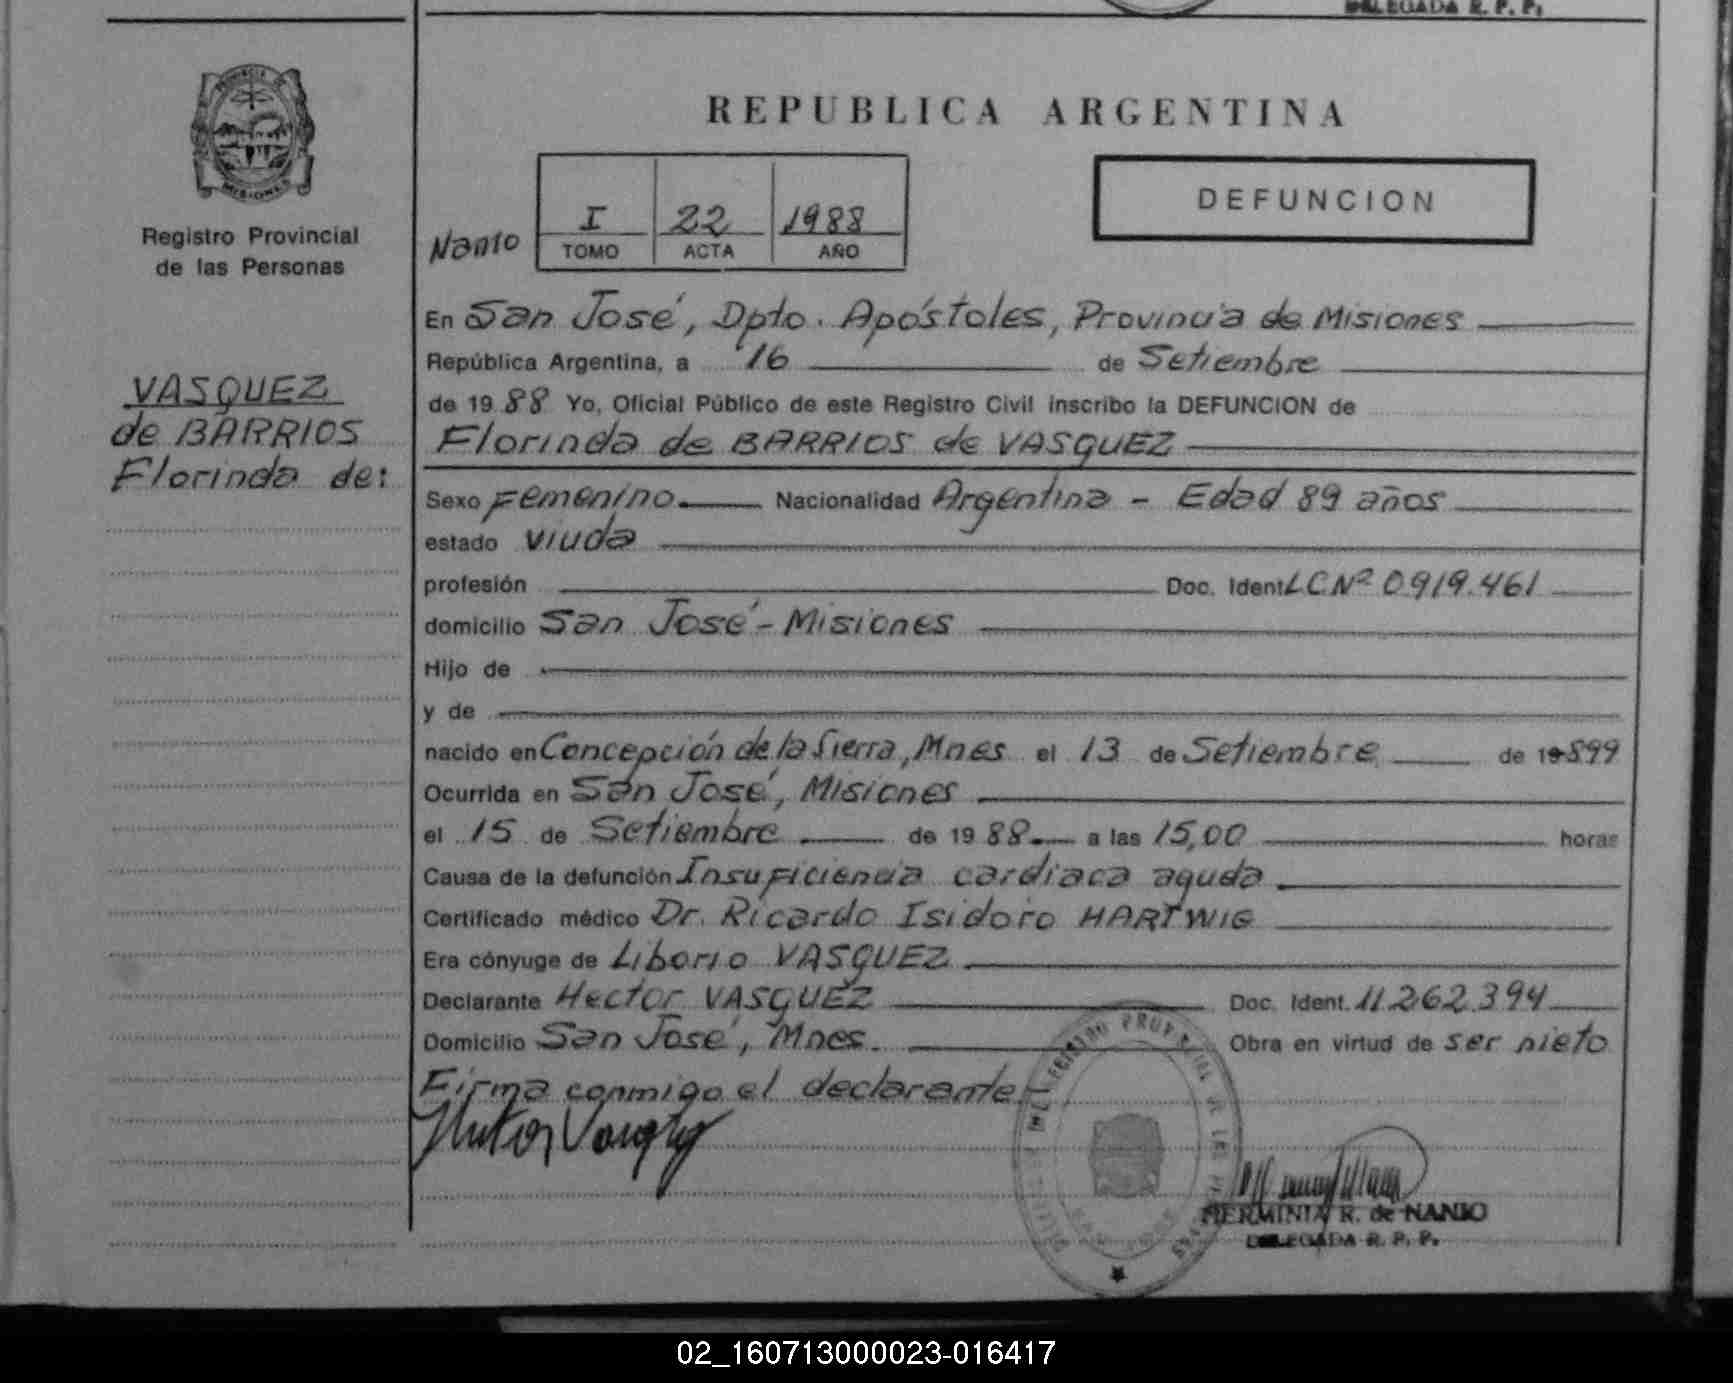 DELEGADA R. P. P.
PROVINCIA DE
MISIONES
Registro Provincial
de las Personas
VASQUEZ
de BARRIOS
Florinda de:
REPUBLICA ARGENTINA
DEFUNCION
Nanio
I 22 1988
TOMO ACTA AÑO
En San José, Dpto. Apóstoles, Provincia de Misiones
República Argentina, a 16 de Setiembre
de 1988 Yo, Oficial Público de este Registro Civil inscribo la DEFUNCION de
Florinda de BARRIOS de VASQUEZ
Sexo Femenino. Nacionalidad Argentina - Edad 89 años
estado viuda
profesión Doc. Ident. LC Nº 0.919.461
domicilio San José - Misiones
Hijo de
y de
nacido en Concepción de la Sierra, Mnes el 13 de Setiembre de 1899
Ocurrida en San José, Misiones
el 15 de Setiembre de 1988 a las 15,00 horas
Causa de la defunción Insuficiencia cardiaca aguda
Certificado médico Dr. Ricardo Isidoro HARTWIG
Era cónyuge de Liborio VASQUEZ
Declarante Hector VASQUEZ Doc. Ident. 11.262.394
Domicilio San José, Mnes. Obra en virtud de ser nieto
Firma conmigo el declarante.
HERMINIA R. de NANIO
DELEGADA R. P. P.
02_160713000023-016417